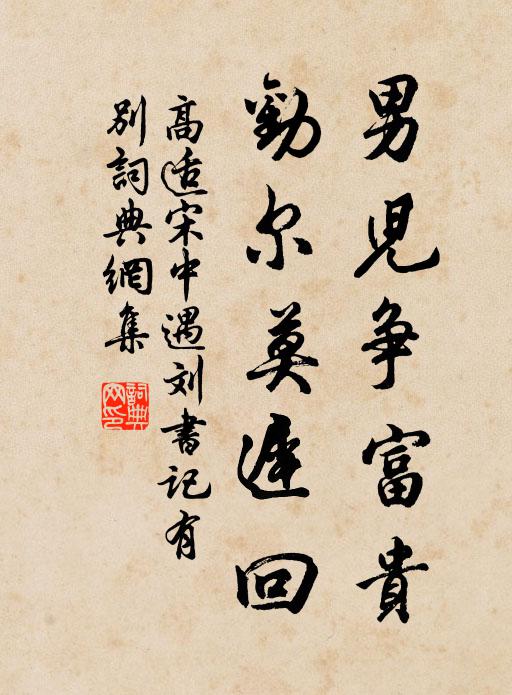 男児争富貴
勸尔莫遲回
高适宋中遇刘書记有
别詞典網集
詞典
网印